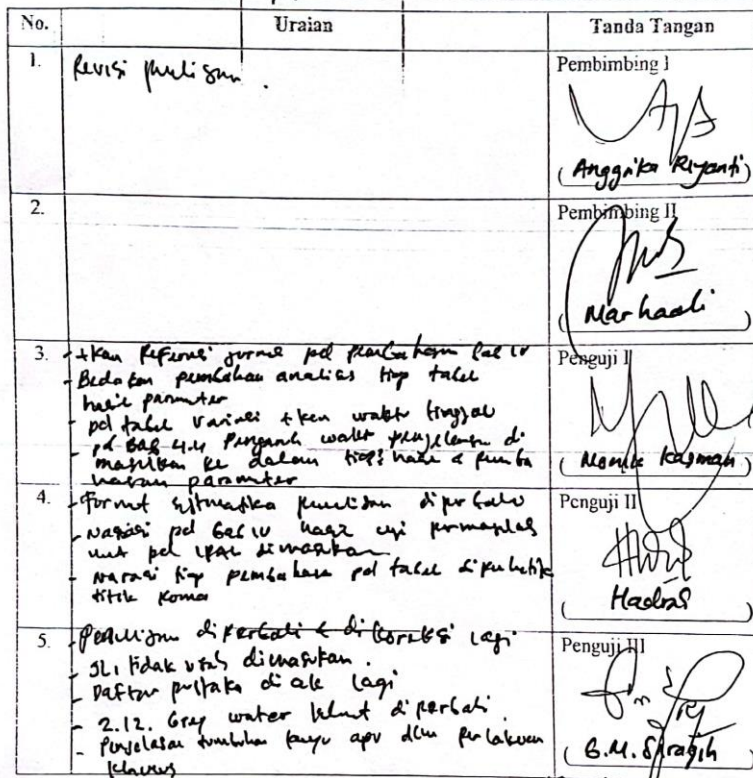 No. Uraian Tanda Tangan
1. Revisi penulisan.
Pembimbing I
(Anggrika Riyanti)
2.
Pembimbing II
(Marhadi)
3. - +kan Referensi jurnal pd pembahasan bab IV
- Bedakan pembahasan analisis tiap tabel
hasil parameter
- pd tabel variasi +kan waktu tinggal
- pd Bab 4.4 Pengaruh waktu
masukan ke dalam tiap hasil & pemba
hasan parameter
Penguji I
(Monik Kasman)
4. - format sistematika penulisan diperbaiki
- Narasi pd bab IV hasil uji
unit pd IPAL dimasukan
- narasi tiap pembahasan pd tabel
titik koma
Penguji II
(Hadrah)
5. - Penulisan diperbaiki & dikoreksi lagi
- tidak usah dimasukan.
- Daftar pustaka di cek lagi
- 2.12. Grey water diperbaiki.
- Penjelasan tumbuhan kayu apu dlm perlakuan
khusus
Penguji III
(G.M. Saragih)